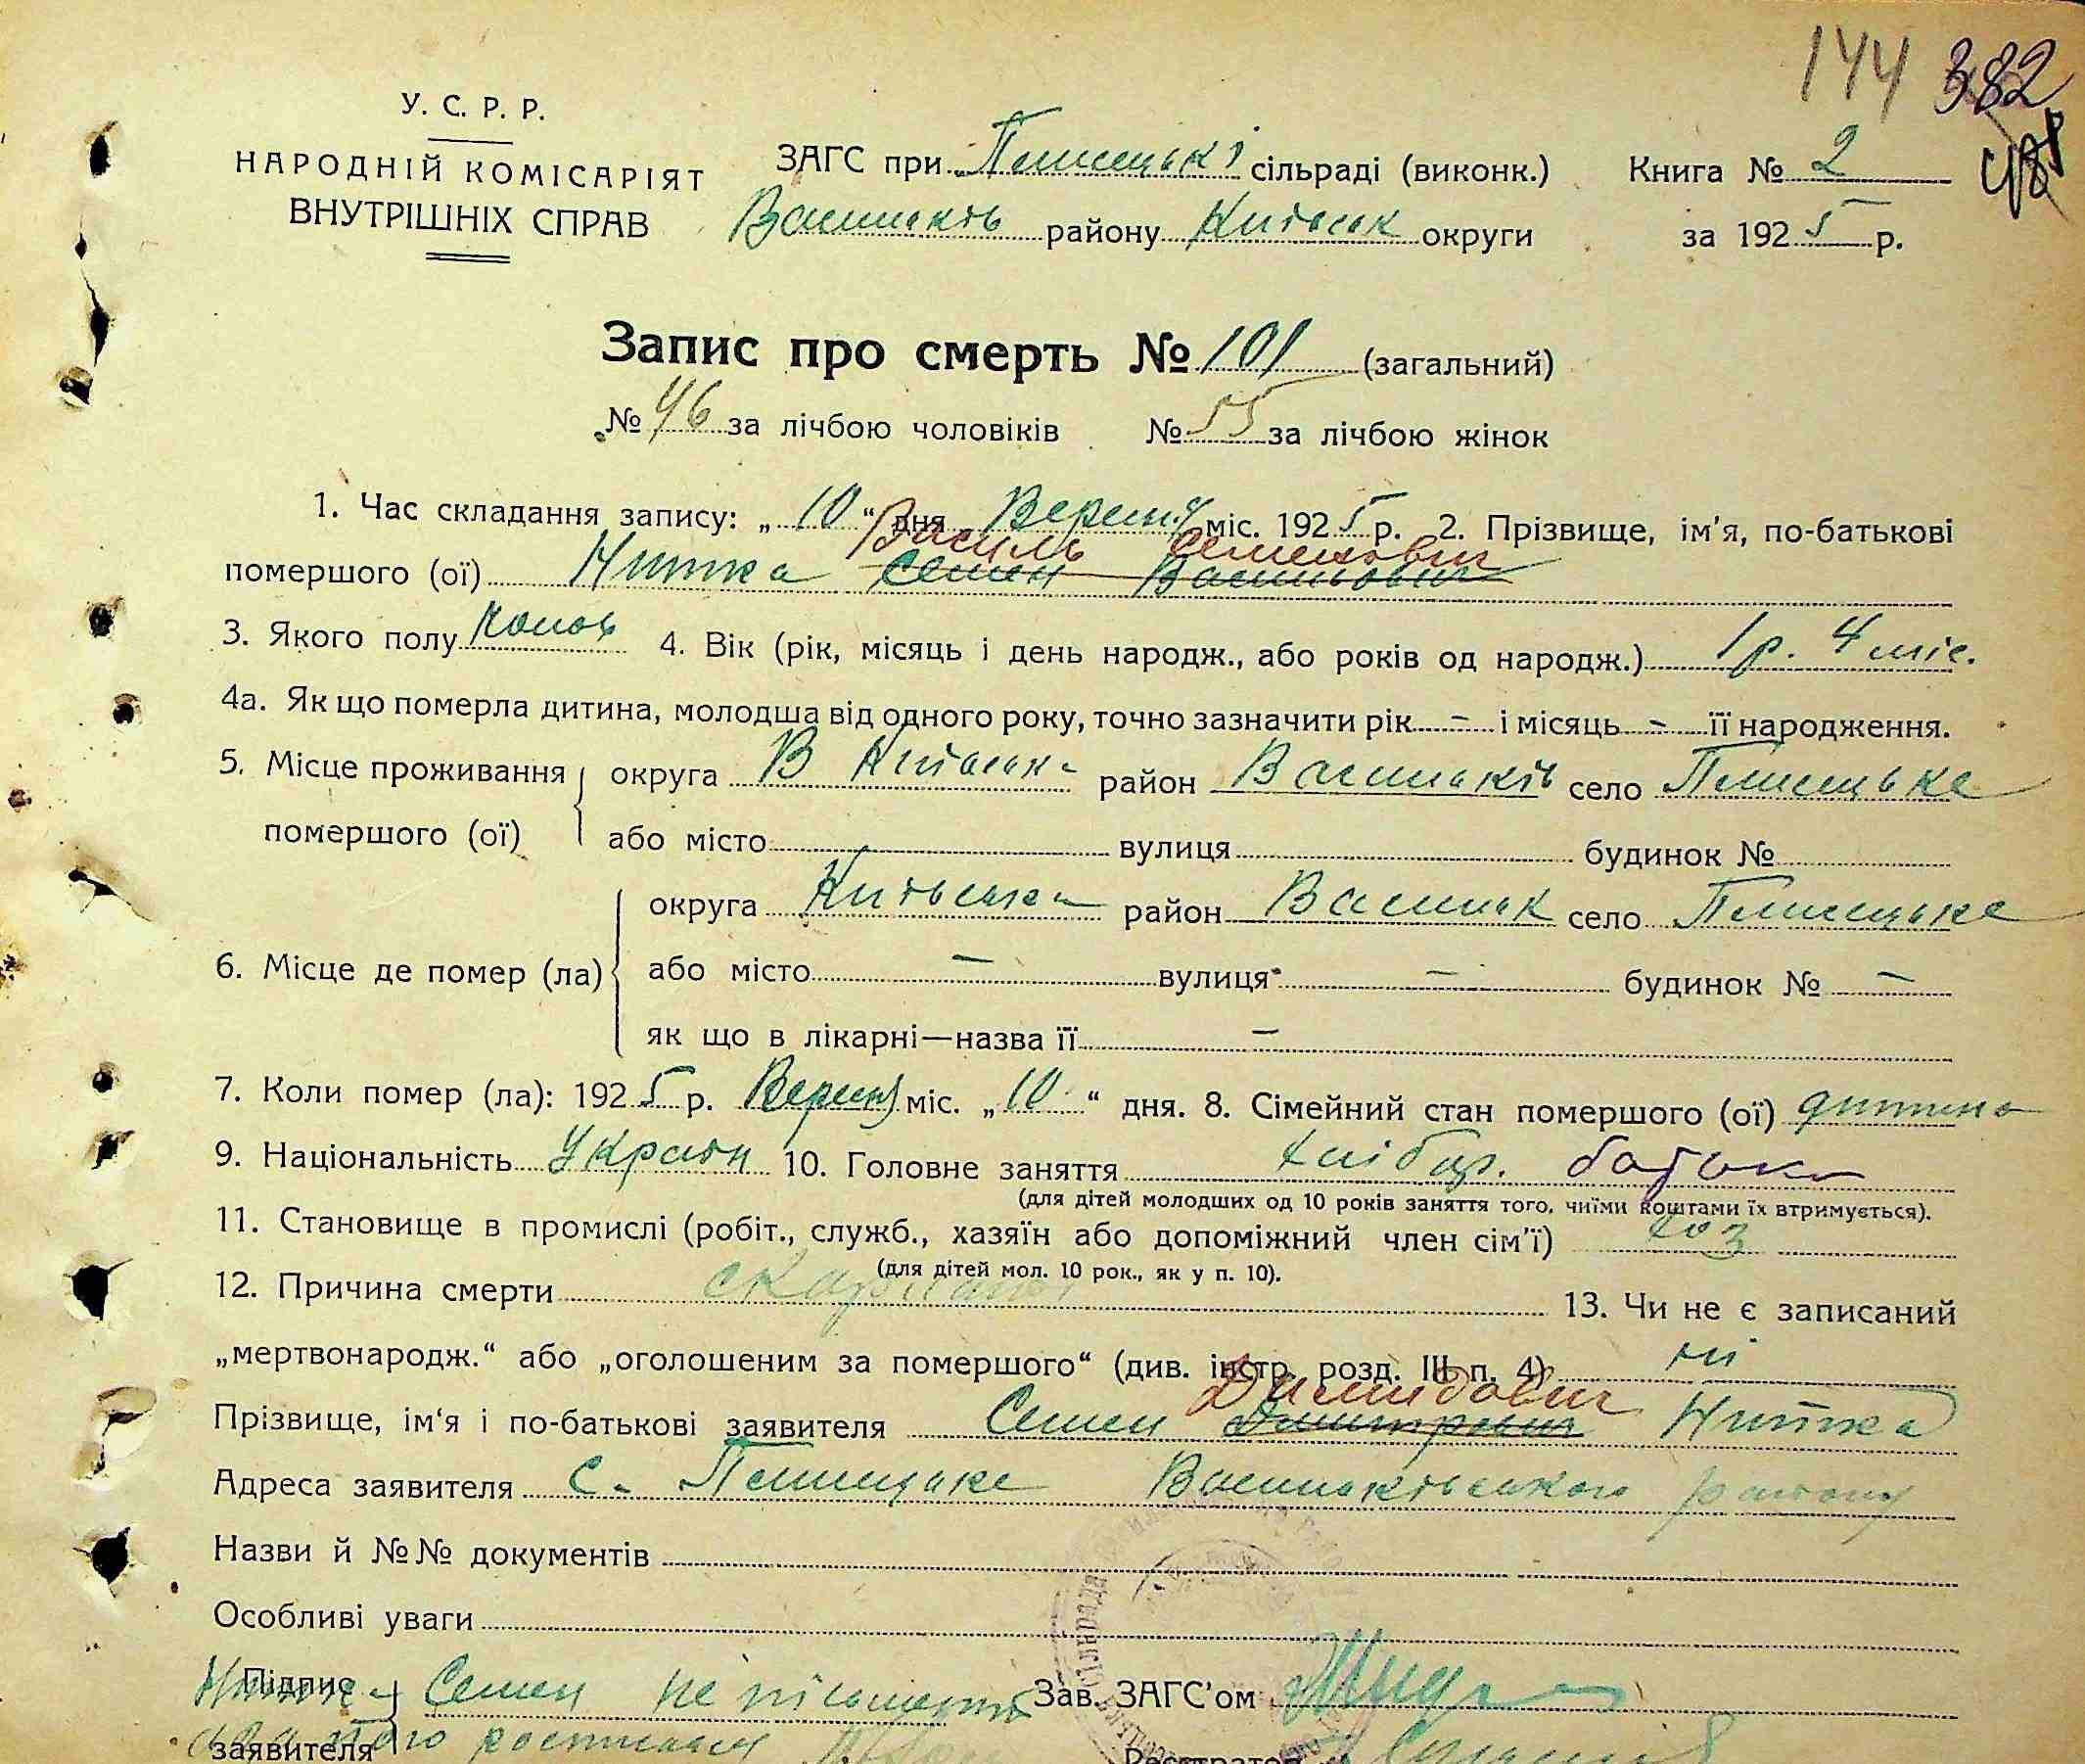 144 382
У. С. Р. Р.
НАРОДНІЙ КОМІСАРІЯТ
ВНУТРІШНІХ СПРАВ
ЗАГС при Плисецькі сільраді (виконк.) Книга № 2
Васильків району Київськ округи за 1925 р.
Запис про смерть № 101 (загальний)
№ 46 за лічбою чоловіків № 55 за лічбою жінок
1. Час складання запису: „10“ дня Вересня міс. 1925 р. 2. Прізвище, ім'я, по-батькові
Василь Семенович
помершого (ої) Нитка Семен Васильович
3. Якого полу 4. Вік (рік, місяць і день народж., або років од народж.) 1 р. 4 міс.
4а. Як що померла дитина, молодша від одного року, точно зазначити рік – і місяць – її народження.
5. Місце проживання округа В Київська район Васильків село Плисецьке
помершого (ої) або місто вулиця будинок №
округа Київська район Васильк село Плисецьке
6. Місце де помер (ла) або місто – вулиця – будинок № –
як що в лікарні—назва її –
7. Коли помер (ла): 1925 р. Вересня міс. „10“ дня. 8. Сімейний стан помершого (ої) дитина
9. Національність Україн 10. Головне заняття хлібор. батько
(для дітей молодших од 10 років заняття того, чиїми коштами їх втримується).
11. Становище в промислі (робіт., служб., хазяїн або допоміжний член сім'ї) хоз
(для дітей мол. 10 рок., як у п. 10).
12. Причина смерти 13. Чи не є записаний
„мертвонародж.“ або „оголошеним за помершого“ (див. інстр. розд. III п. 4) ні
Демидович
Прізвище, ім'я і по-батькові заявителя Семен Дмитрович Нитка
Адреса заявителя С. Плисецьке Васильківського району
Назви й №№ документів
Особливі уваги
Підпис Нитка Семен не письменний Зав. ЗАГС'ом
заявителя за його росписався Реєстратор